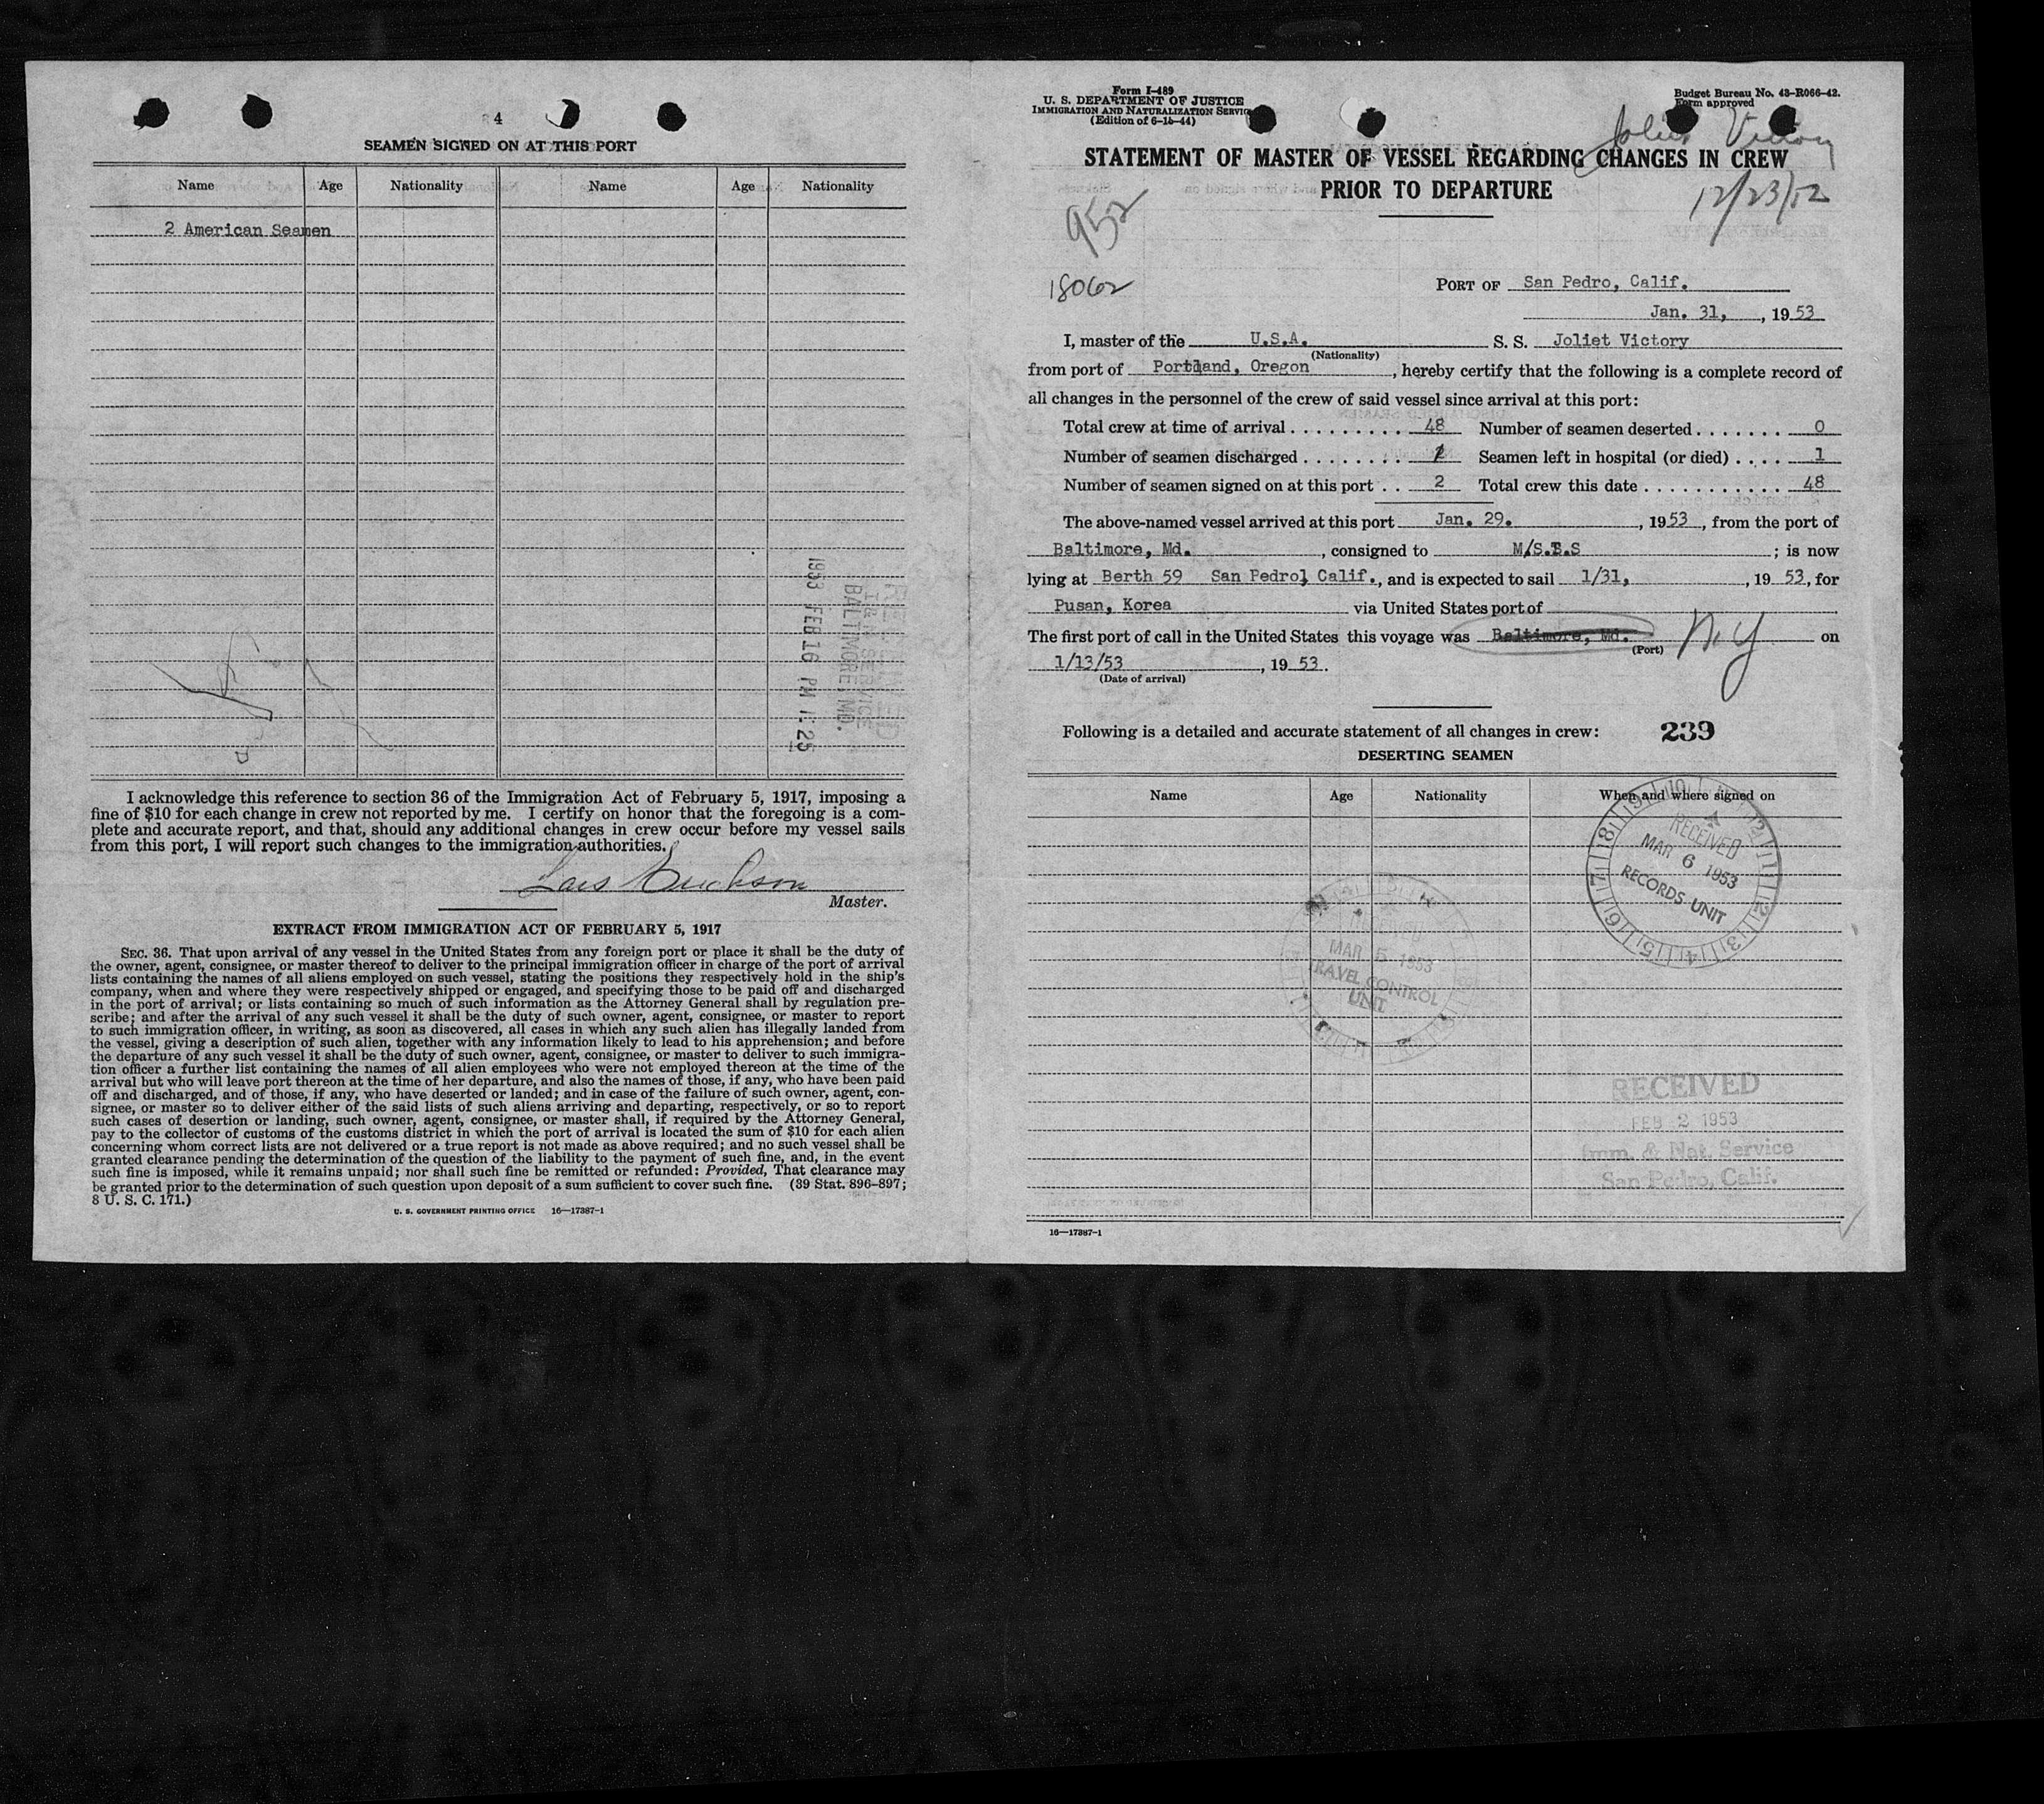 4
SEAMEN SIGNED ON AT THIS PORT
Name Age Nationality Name Age Nationality
2 American Seamen
1953 FEB 16 PM 1:25
I & N SERVICE
BALTIMORE MD.
I acknowledge this reference to section 36 of the Immigration Act of February 5, 1917, imposing a
fine of $10 for each change in crew not reported by me. I certify on honor that the foregoing is a com-
plete and accurate report, and that, should any additional changes in crew occur before my vessel sails
from this port, I will report such changes to the immigration authorities.
Lars Erickson
Master.
EXTRACT FROM IMMIGRATION ACT OF FEBRUARY 5, 1917
SEC. 36. That upon arrival of any vessel in the United States from any foreign port or place it shall be the duty of
the owner, agent, consignee, or master thereof to deliver to the principal immigration officer in charge of the port of arrival
lists containing the names of all aliens employed on such vessel, stating the positions they respectively hold in the ship's
company, when and where they were respectively shipped or engaged, and specifying those to be paid off and discharged
in the port of arrival; or lists containing so much of such information as the Attorney General shall by regulation pre-
scribe; and after the arrival of any such vessel it shall be the duty of such owner, agent, consignee, or master to report
to such immigration officer, in writing, as soon as discovered, all cases in which any such alien has illegally landed from
the vessel, giving a description of such alien, together with any information likely to lead to his apprehension; and before
the departure of any such vessel it shall be the duty of such owner, agent, consignee, or master to deliver to such immigra-
tion officer a further list containing the names of all alien employees who were not employed thereon at the time of the
arrival but who will leave port thereon at the time of her departure, and also the names of those, if any, who have been paid
off and discharged, and of those, if any, who have deserted or landed; and in case of the failure of such owner, agent, con-
signee, or master so to deliver either of the said lists of such aliens arriving and departing, respectively, or so to report
such cases of desertion or landing, such owner, agent, consignee, or master shall, if required by the Attorney General,
pay to the collector of customs of the customs district in which the port of arrival is located the sum of $10 for each alien
concerning whom correct lists are not delivered or a true report is not made as above required; and no such vessel shall be
granted clearance pending the determination of the question of the liability to the payment of such fine, and, in the event
such fine is imposed, while it remains unpaid; nor shall such fine be remitted or refunded: Provided, That clearance may
be granted prior to the determination of such question upon deposit of a sum sufficient to cover such fine. (39 Stat. 896-897;
8 U. S. C. 171.)
U. S. GOVERNMENT PRINTING OFFICE 16—17387-1
Form I-489
U. S. DEPARTMENT OF JUSTICE
IMMIGRATION AND NATURALIZATION SERVICE
(Edition of 6-15-44)
Budget Bureau No. 43-R066-42.
Form approved
Joliet Victory
STATEMENT OF MASTER OF VESSEL REGARDING CHANGES IN CREW
PRIOR TO DEPARTURE
12/23/52
952
18062
PORT OF San Pedro, Calif.
Jan. 31, , 19 53
I, master of the U.S.A. S. S. Joliet Victory
(Nationality)
from port of Portland, Oregon , hereby certify that the following is a complete record of
all changes in the personnel of the crew of said vessel since arrival at this port:
Total crew at time of arrival . . . . . . . . . . 48 Number of seamen deserted . . . . . . . 0
Number of seamen discharged . . . . . . . . 1 Seamen left in hospital (or died) . . . . 1
Number of seamen signed on at this port . . 2 Total crew this date . . . . . . . . . . . . 48
The above-named vessel arrived at this port Jan. 29. , 19 53 , from the port of
Baltimore, Md. , consigned to M/S.T.S ; is now
lying at Berth 59 San Pedro, Calif. , and is expected to sail 1/31, , 19 53, for
Pusan, Korea via United States port of
The first port of call in the United States this voyage was Baltimore, Md. N.Y on
(Port)
1/13/53 , 19 53 .
(Date of arrival)
Following is a detailed and accurate statement of all changes in crew: 239
DESERTING SEAMEN
Name Age Nationality When and where signed on
RECEIVED
MAR 6 1953
RECORDS UNIT
RECEIVED
MAR 5 1953
TRAVEL CONTROL
UNIT
RECEIVED
FEB 2 1953
Imm. & Nat. Service
San Pedro, Calif.
16—17387-1